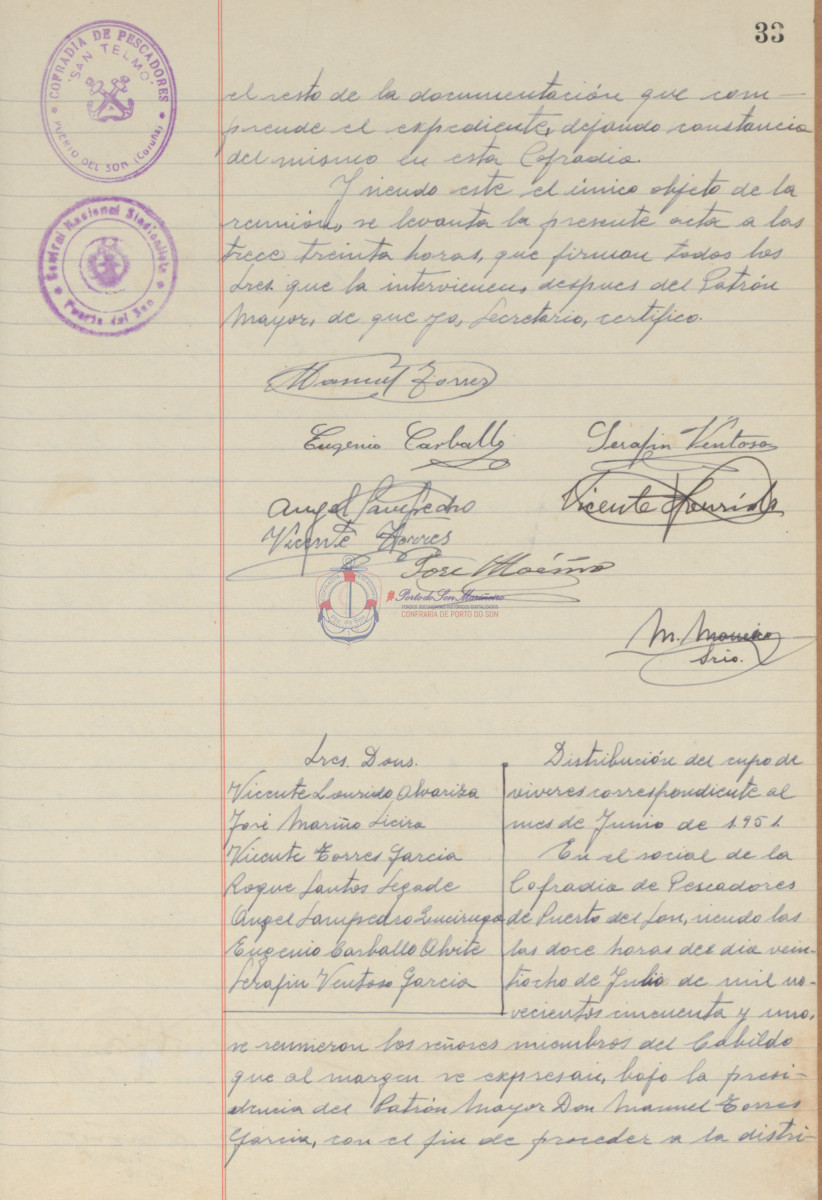 33
COFRADIA DE PESCADORES
"SAN TELMO"
PUERTO DEL SON (Coruña)
Central Nacional Sindicalista
Puerto del Son
el resto de la documentación que com-
prende el expediente, dejando constancia
del mismo en esta Cofradia.
Y siendo este el único objeto de la
reunión, se levanta la presente acta a las
trece treinta horas, que firman todos los
Sres. que la intervienen, despues del Patrón
Mayor, de que yo, Secretario, certifico.
Manuel Torres
Eugenio Carballo
Serafin Ventoso
Angel Sampedro
Vicente Lourido
Vicente Torres
Jose Mariño
Porto do Son Mariñeiro
FONDOS DOCUMENTAIS HISTÓRICOS DIXITALIZADOS
CONFRARÍA DE PORTO DO SON
M.
Srio.
Sres. Dons.
Vicente Lourido Alvariza
José Mariño Sieira
Vicente Torres Garcia
Roque Santos Segade
Ángel Sampedro
Eugenio Carballo Alvite
Serafin Ventoso Garcia
Distribución del cupo de
viveres correspondiente al
mes de Junio de 1.951.
En el social de la
Cofradia de Pescadores
de Puerto del Son, siendo las
las doce horas del dia vein-
tiocho de Julio de mil no-
vecientos cincuenta y uno,
se reunieron los señores miembros del Cabildo
que al margen se expresan, bajo la presi-
dencia del Patrón Mayor Don Manuel Torres
Garcia, con el fin de proceder a la distri-